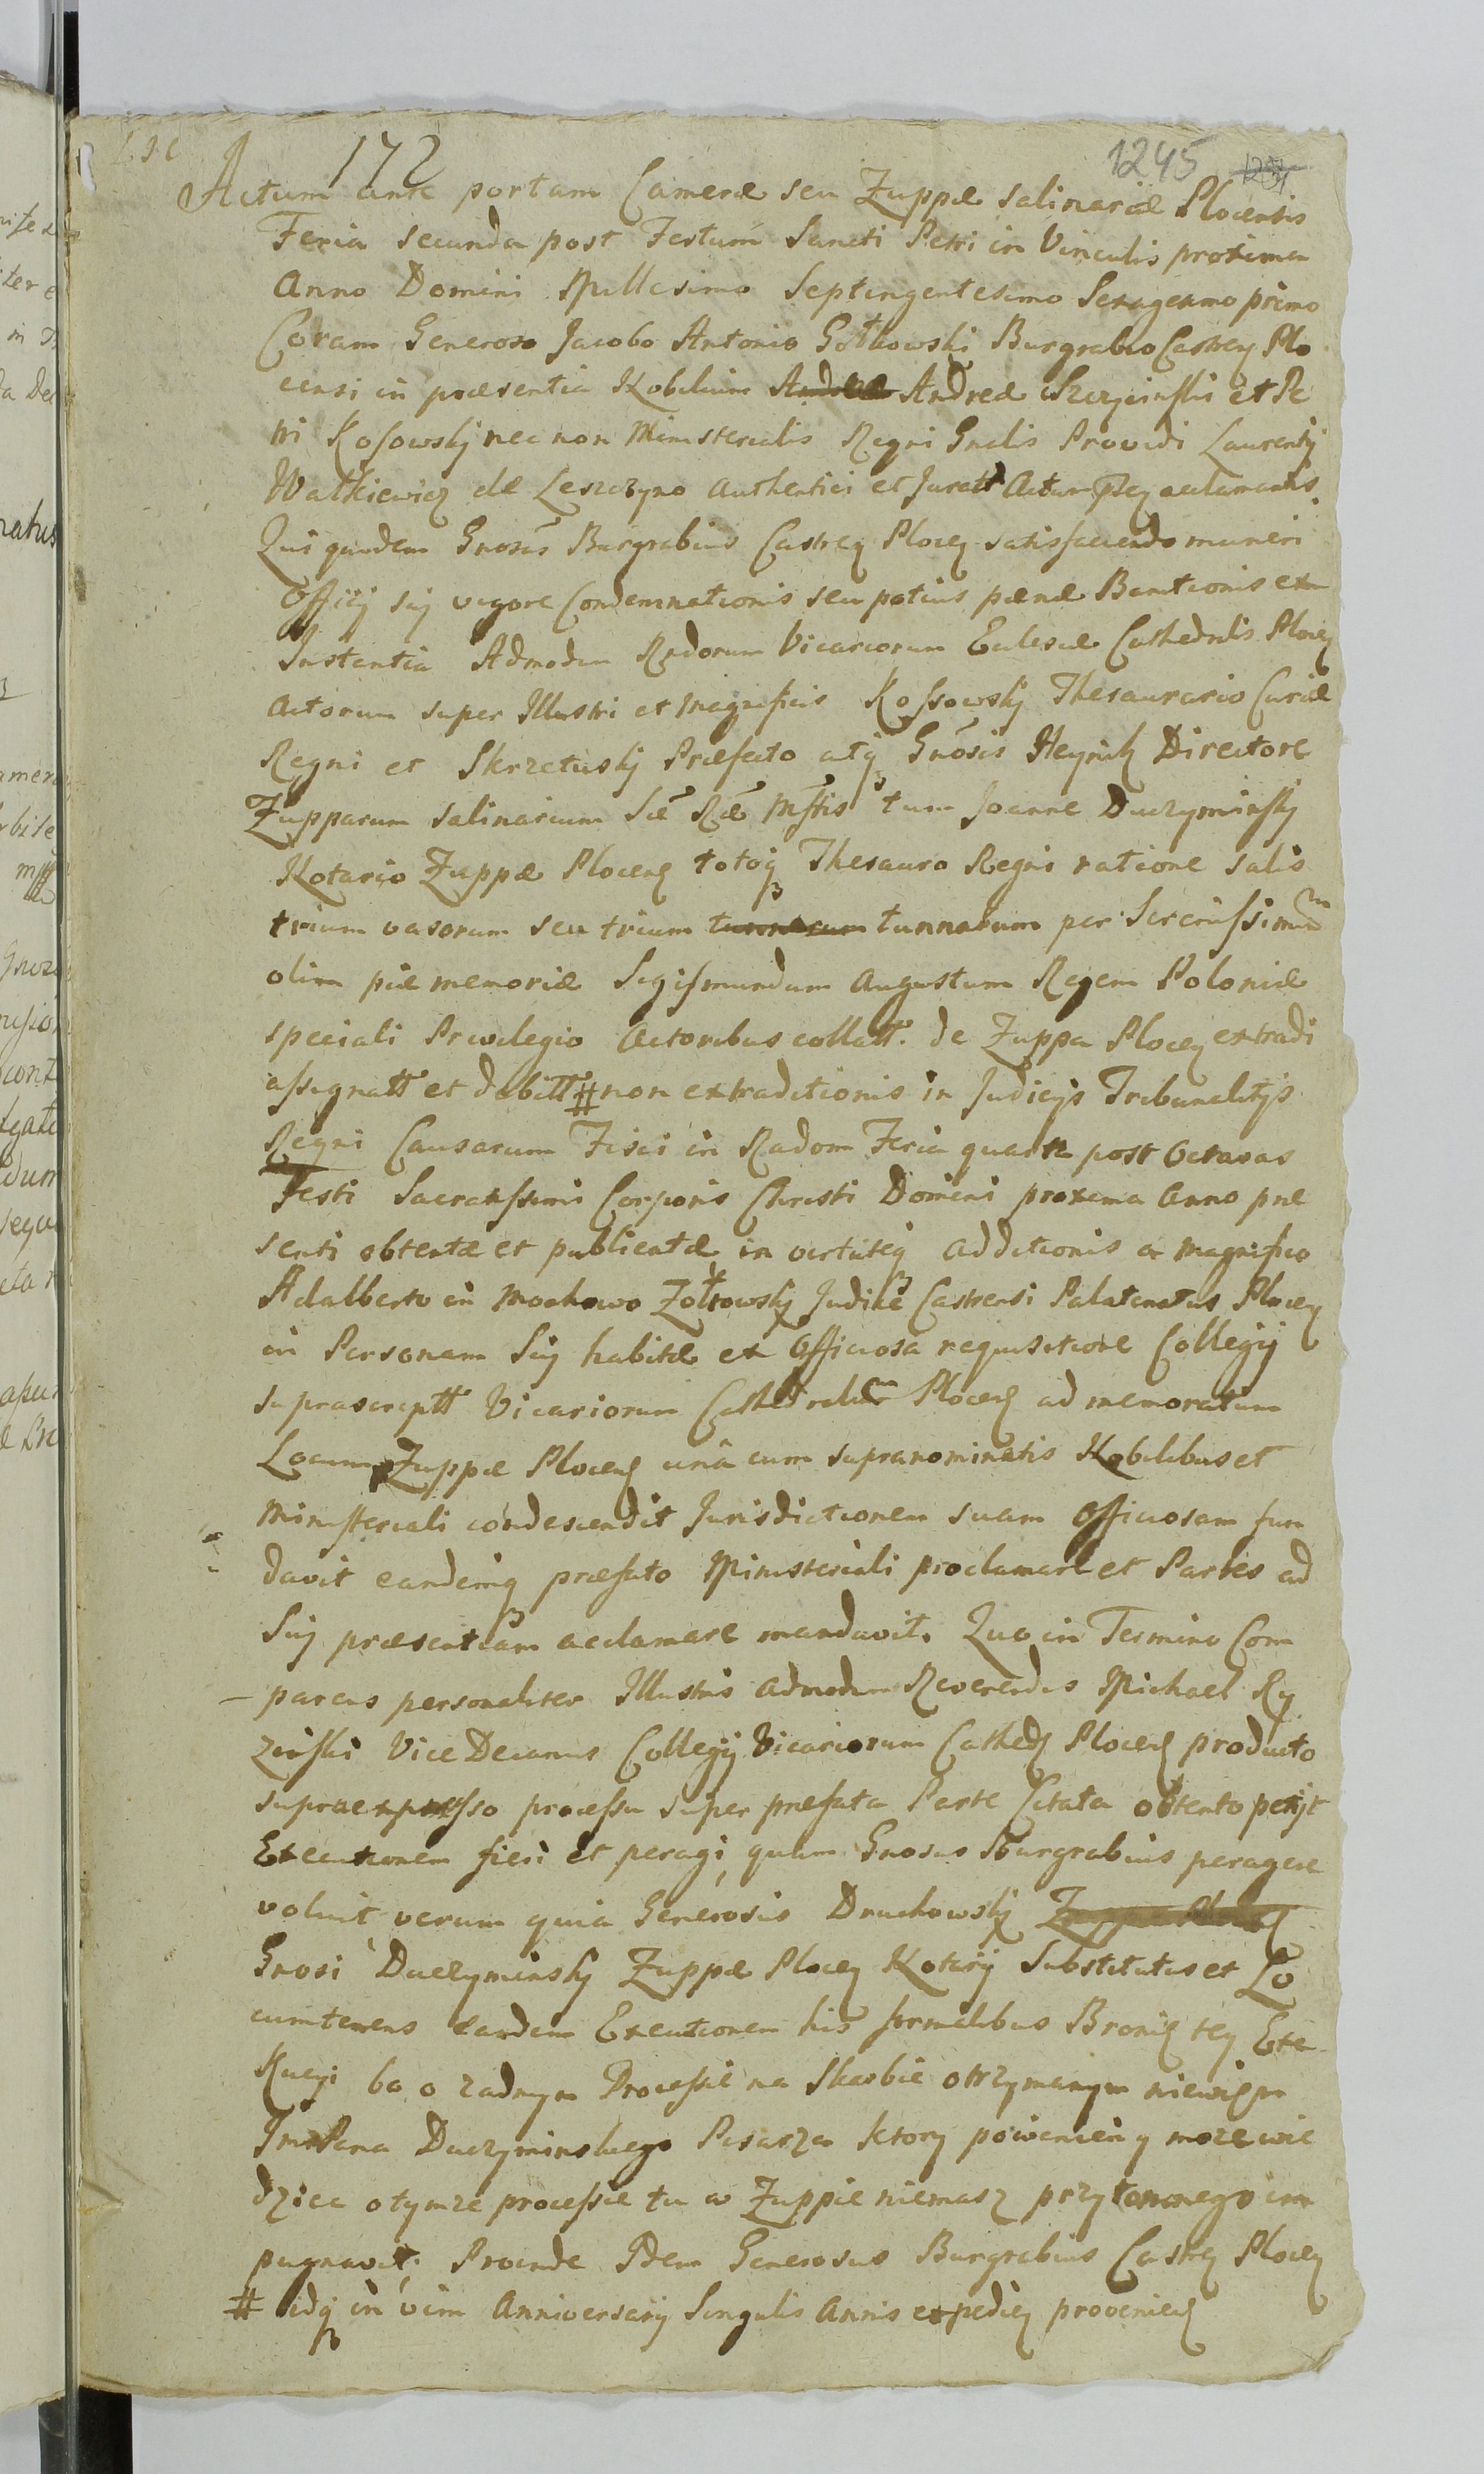 172
1245
Actum ante portam Cameræ seu Zuppæ salinariæ Plocensis
Feria secunda post Festum Sancti Petri in Vinculis proxima
Anno Domini Millesimo Septingentesimo Sexagesimo primo
Coram Generoso Jacobo Antonio Gołkowski Burgrabio Castreȝ Plo
censi in præsentia Nobilium Andreæ Andreæ et Pe
tri Kosowskÿ nec non Ministerialis Regni Gnalis Providi Laurentÿ
Watkiewicz de Leszczyno Authentici et Juratt Actum acclamantis.
Qui quidem Gnosus Burgrabius Castreȝ Ploceȝ satisfaciendo muneri
Officÿ sui vigore Condemnationis seu potius pænæ Bannitionis ex
Instantia Admodum Rndorum Vicariorum Eclesiæ Cathedralis Ploceȝ
Actorum super Illustri et Magnificis Kossowskÿ Thesaurario Curiæ
Regni et Skrzetuskÿ Præfecto atqȝ Gnosis Heynich Directore
Zupparum Salinarium Sæ Ræ Mttis tum Joanne Duczyminskÿ
Notario Zuppæ Ploceȝ totoqȝ Thesauro Regni ratione salis
trium vasorum seu trium tunnarum tunnarum per Serenissimum
olim piæ memoriæ Sigismundum Augustum Regem Poloniæ
speciali Privilegio Actoribus collatt. de Zuppa Ploceȝ extradi
assignatt et debitt # non extraditionis in Judicÿs Tribunalitÿs
Regni Causarum Fisci in Radom Feria quarta post Octavas
Festi Sacratissimi Corporis Christi Domini proxima Anno præ
senti obtentæ et publicatæ, in virtuteqȝ additionis a Magnifico
Adalberto in Mochowo Zołtowskÿ Judice Castrensi Palatinatus Ploceȝ
in Personam Sui habitæ ex Officiosa requisitione Collegÿ
suprascriptt Vicariorum Cathedralium Ploceȝ ad memoratum
Locum Zuppæ Ploceȝ unâ cum supranominatis Nobilibus et
Ministeriali condescendit Jurisdictionem suam Officiosam fun
davit eandemqȝ præfato Ministeriali proclamare et Partes ad
Sui præsentiam acclamare mandavit. Quo in Termino Com
parens personaliter Illustris Admodum Reverendus Michael Ry
zinski Vice Decanus Collegÿ Vicariorum Cathedȝ Ploceȝ producto
supraexpresso processu super præfata Parte Citata obtento petÿt
Executionem fieri et peragi, quam Gnosus Burgrabius peragere
voluit verum quia Generosus Druchowskÿ Zuppæ Ploceȝ
Gnosi Duczyminskÿ Zuppæ Ploceȝ Notarÿ Substitutus et Lo
cumtenens eandem Executionem his formalibus Bronię tey Exe
kucyi bo o zadnym Processie na Skarbie otrzymanym niewięm
Jmć Pana Duczyminskiego Pisarza ktory powinien y moze wie
dziec o tymze processie tu w Zuppie niemasz przytomnego im
pugnavit. Proinde Idem Generosus Burgrabius Castreȝ Ploceȝ
# idqȝ in vim Anniversarÿ Singulis Annis expedieȝ provenieȝ